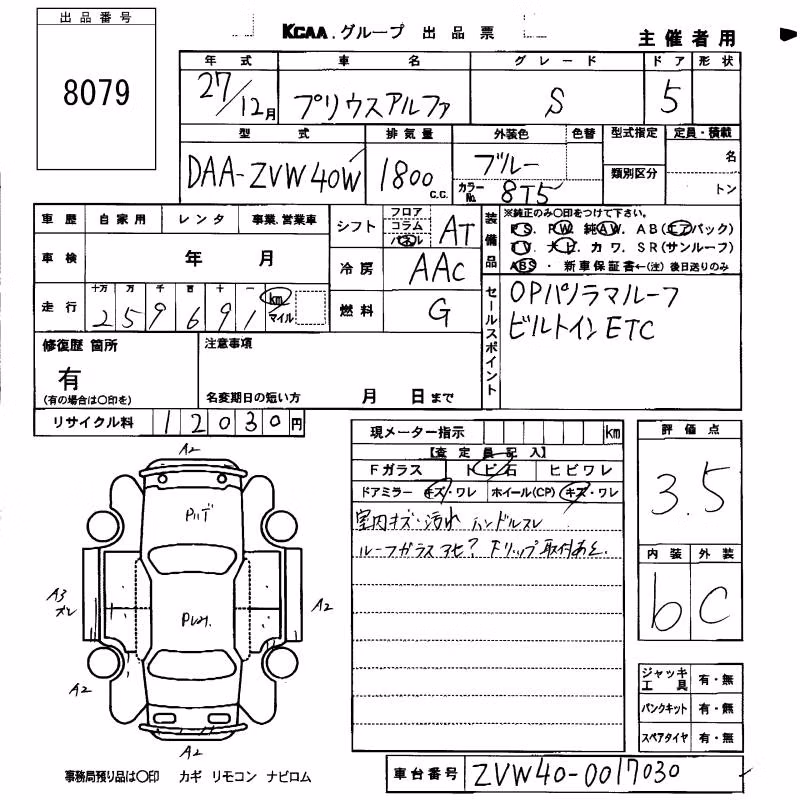 出品番号
8079
KCAA.グループ 出品票
主催者用
年式 車名 グレード ドア 形状
27/12月 プリウスアルファ S 5
型式 排気量 外装色 色替 型式指定 定員・積載
DAA-ZVW40W 1800 C.C. ブルー 名
類別区分
カラーNo. 8T5 トン
車歴 自家用 レンタ 事業.営業車
シフト フロア コラム パネル AT
装備品 ※純正のみ〇印をつけて下さい。
PS. PW. 純AW. AB(エアバック)
TV. ナビ. カワ. SR(サンルーフ)
ABS ・ 新車保証書←(注) 後日送りのみ
車検 年 月
冷房 AAC
走行 十万 万 千 百 十 一
2 5 9 6 9 1 km マイル
燃料 G
セールスポイント OPパノラマルーフ
ビルトインETC
修復歴 箇所
有
(有の場合は〇印を)
注意事項
名変期日の短い方 月 日まで
リサイクル料 12030円
現メーター指示 km
【査定員記入】
Fガラス トビ石 ヒビワレ
ドアミラー キズ・ワレ ホイール(CP) キズ・ワレ
室内キズ・汚れ ハンドルスレ
評価点
3.5
内装 外装
b C
A2
A3
A2
A2
A2
ジャッキ工具 有・無
パンクキット 有・無
スペアタイヤ 有・無
事務局預り品は〇印 カギ リモコン ナビロム
車台番号 ZVW40-0017030